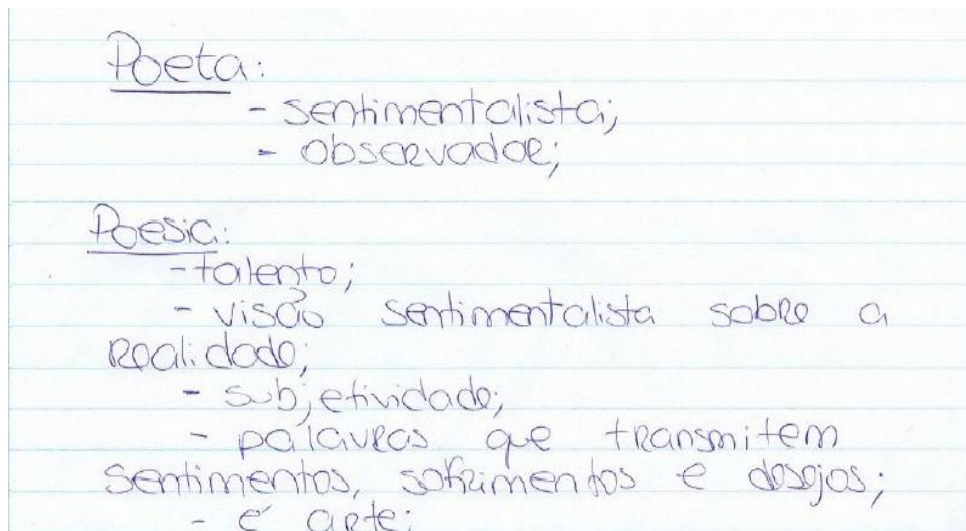 Poeta:
- sentimentalista;
- observador;
Poesia:
- talento;
- visão sentimentalista sobre a
realidade;
- subjetividade;
- palavras que transmitem
sentimentos, sofrimentos e desejos;
- é arte;